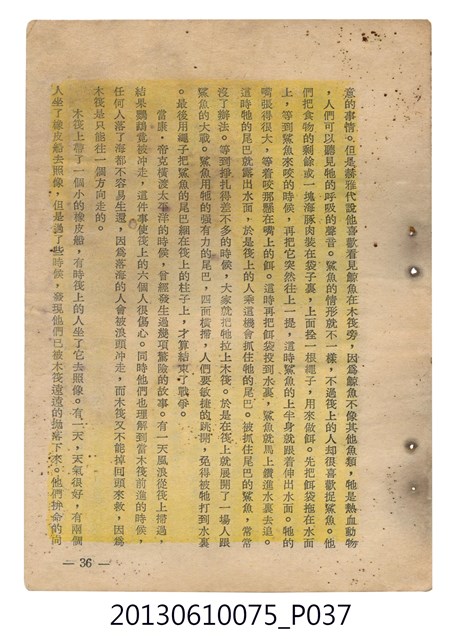 意的事情。但是赫雅代說他喜歡看見鯨魚在木筏旁，因爲鯨魚不像其他魚類，牠是熱血動物
，人們可以聽見牠的呼吸的聲音。鯊魚的情形就不一樣，不過筏上的人却很喜歡捉鯊魚。他
們把食物的剩餘或一塊海豚肉裝在袋子裏，上面拴一根繩子，用來做餌。先把餌袋拖在水面
上，等到鯊魚來咬的時候，再把它突然往上一提，這時鯊魚的上半身就跟着伸出水面。牠的
嘴張得很大，等着咬那懸在嘴上的餌。這時再把餌袋投到水裏，鯊魚就馬上鑽進水裏去追。
這時牠的尾巴就露出水面，於是筏上的人乘這機會抓住牠的尾巴。被抓住尾巴的鯊魚，常常
沒了辦法。等到掙扎得差不多的時候，大家就把牠拉上木筏。於是在筏上就展開了一場人跟
鯊魚的大戰。鯊魚用牠的強有力的尾巴，四面橫掃，人們要敏捷的跳開，免得被牠打到水裏
。最後用繩子把鯊魚的尾巴綑在筏上的柱子上，才算結束了戰爭。
當康·帝克橫渡太平洋的時候，曾經發生過幾項驚險的故事。有一天風浪從筏上捲過，
結果鸚鵡竟被冲走，這件事使筏上的六個人很傷心。同時他們也理解到當木筏前進的時候，
任何人落了海都不容易生還，因爲落海的人會被浪頭冲走，而木筏又不能掉回頭來救，因爲
木筏是只能往一個方向走的。
木筏上帶了一個小的橡皮船，有時筏上的人坐了它去照像。有一天，天氣很好，有兩個
人坐了橡皮船去照像，但是過了些時候，發現他們已被木筏遠遠的拋落下來。他們拚命的向
— 36 —
20130610075_P037